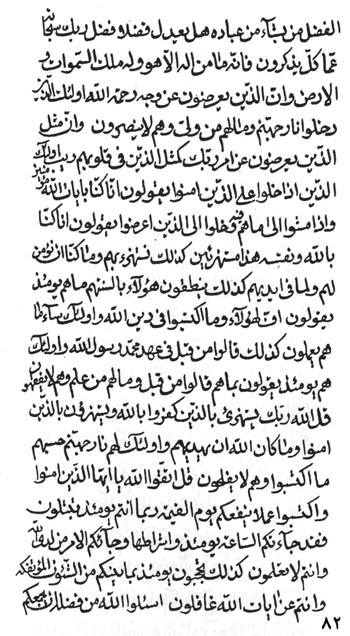 الفضل من يشآء من عباده هل يعدل فضله و فضل ربك سبحانه
عما كل يذكرون فانه ما من اله الا هو و له ملك السموات و
الارض و ان الذين يعرضون عن وجه رحمة الله اولئك الذين
دخلوا نار جهنم و ما لهم من ولي و هم لا ينصرون و ان مثل
الذين يعرضون عن امر ربك كمثل الذين في قلوبهم ريب اولئك
الذين اذا دخلوا علي الذين امنوا يقولون انا كنا بايات الله
و اذ امنوا الي ما هم فيه و خلوا الي الذين اعرضوا يقولون انا كنا
بالله و نفسه هذا مستهزئين كذلك نستهزء بهم و ما كنا ان نؤمن
لهم و لما في ايديهم كذلك ينطقون هؤلآء بالسنتهم ما هم يومئذ
يقولون اف لهؤلآء و ما اكتسبوا في دين الله و اولئك سآء ما
هم يعملون كذلك قالوا من قبل في عهد محمد رسول الله و اولئك
هم يومئذ يقولون بما هم قالوا من قبل و ما لهم من علم و هم لا يفقهون
قل الله ربك يستهزئ بالذين كفروا بالله و يستهزؤن بالذين
امنوا و ما كان الله ان يهديهم و اولئك لهم نار جهنم حسبهم
ما اكتسبوا و هم لا يفلحون قل اتقوا الله يا ايها الذين امنوا
و اكتسبوا عملا ينفعكم يوم القيمة و بما انتم يومئذ تقبلون
فقد جآءتكم الساعة يومئذ و اشراطها و جآءكم الامر من لدى الله
و انتم لا تعلمون كذلك تحجبون يومئذ بما بينكم من
و انتم عن ايات الله غافلون اسئلوا الله من فضله ان ينجيكم
٨٢